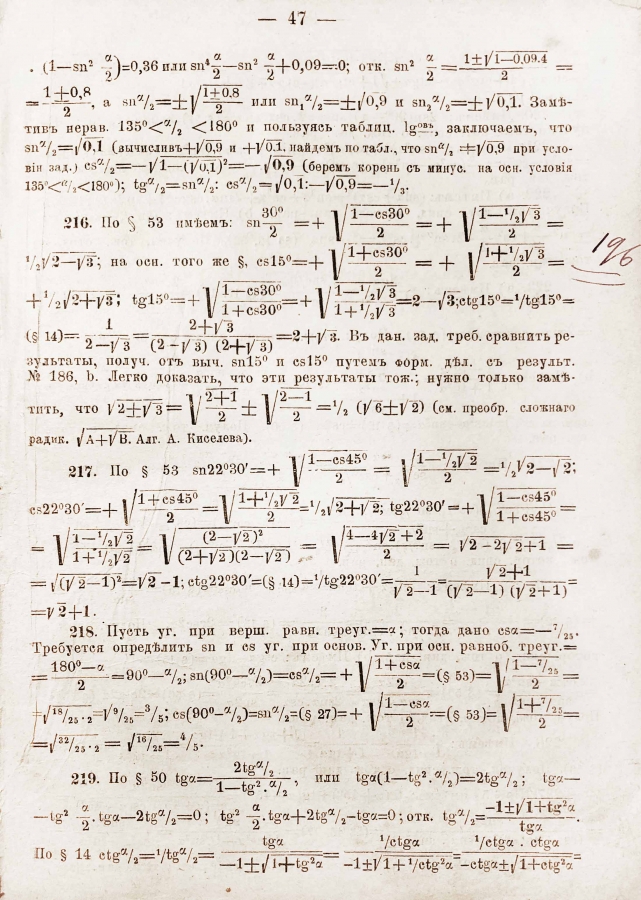 — 47 —
(1—sn² α/2)=0,36 или sn⁴ α/2—sn² α/2+0,09=0; отк. sn² α/2 = (1±√1—0,09.4)/2 =
= (1±0,8)/2, а snᵅ/₂=±√(1±0,8)/2 или sn₁ᵅ/₂=±√0,9 и sn₂ᵅ/₂=±√0,1. Замѣ-
тивъ нерав. 135⁰<ᵅ/₂ <180⁰ и пользуясь таблиц. lgᵒᵇᵚ, заключаемъ, что
snᵅ/₂=√0,1 (вычисливъ+√0,9 и +√0,1. найдемъ по табл., что snᵅ/₂ ≠√0,9 при усло-
віи зад.) csᵅ/₂=—√1—(√0,1)²=—√0,9 (беремъ корень съ минус. на осн. условія
135⁰<ᵅ/₂<180⁰); tgᵅ/₂=snᵅ/₂: csᵅ/₂=√0,1:—√0,9=—¹/₃.
216. По § 53 имѣемъ: sn 30⁰/2 =+ √(1—cs30⁰)/2 = + √(1—¹/₂√3)/2 =
¹/₂√2—√3; на осн. того же §, cs15⁰=+ √(1+cs30⁰)/2 = + √(1+¹/₂√3)/2 =
196
+¹/₂√2+√3; tg15⁰=+ √(1—cs30⁰)/(1+cs30⁰) =+ √(1—¹/₂√3)/(1+¹/₂√3) =2—√3; ctg15⁰=¹/tg15⁰=
(§ 14)= 1/(2—√3) = (2+√3)/((2-√3) (2+√3)) =2+√3. Въ дан. зад. треб. сравнить ре-
зультаты, получ. отъ выч. sn15⁰ и cs15⁰ путемъ форм. дѣл. съ результ.
№ 186, b. Легко доказать, что эти результаты тож.; нужно только замѣ-
тить, что √2±√3 = √(2+1)/2 ± √(2—1)/2 =¹/₂ (√6±√2) (см. преобр. сложнаго
радик. √A+√B. Алг. А. Киселева).
217. По § 53 sn22⁰30′=+ √(1—cs45⁰)/2 = √(1—¹/₂√2)/2 =¹/₂√2—√2;
cs22⁰30′=+ √(1+cs45⁰)/2 = √(1+¹/₂√2)/2 =¹/₂√2+√2; tg22⁰30′=+ √(1—cs45⁰)/(1+cs45⁰) =
= √(1—¹/₂√2)/(1+¹/₂√2) = √(2—√2)²/((2+√2)(2—√2)) = √(4—4√2+2)/2 = √2-2√2+1 =
=√(√2—1)²=√2-1; ctg22⁰30′=(§ 14)=¹/tg22⁰30′= 1/(√2—1) = (√2+1)/((√2—1) (√2+1)) =
=√2+1.
218. Пусть уг. при верш. равн. треуг.=α; тогда дано csα=—⁷/₂₅.
Требуется опредѣлить sn и cs уг. при основ. Уг. при осн. равноб. треуг.=
= (180⁰—α)/2 =90⁰—ᵅ/₂; sn(90⁰—ᵅ/₂)=csᵅ/₂= + √(1+csα)/2 =(§ 53)= √(1—⁷/₂₅)/2 =
+√¹⁸/₂₅.₂=√⁹/₂₅=³/₅; cs(90⁰-ᵅ/₂)=snᵅ/₂=(§ 27)=+ √(1—csα)/2 =(§ 53)= √(1+⁷/₂₅)/2 =
=√³²/₂₅.₂ = √¹⁶/₂₅=⁴/₅.
219. По § 50 tgα= 2tgᵅ/₂/(1—tg².ᵅ/₂), или tgα(1—tg².ᵅ/₂)=2tgᵅ/₂; tgα—
—tg² α/2.tgα—2tgᵅ/₂=0; tg² α/2.tgα+2tgᵅ/₂-tgα=0; отк. tgᵅ/₂= (-1±√1+tg²α)/tgα.
По § 14 ctgᵅ/₂=¹/tgᵅ/₂= tgα/(—1±√1+tg²α) = ¹/ctgα/(-1±√1+¹/ctg²α) = (¹/ctgα . ctgα)/(-ctgα±√1+ctg²α) =